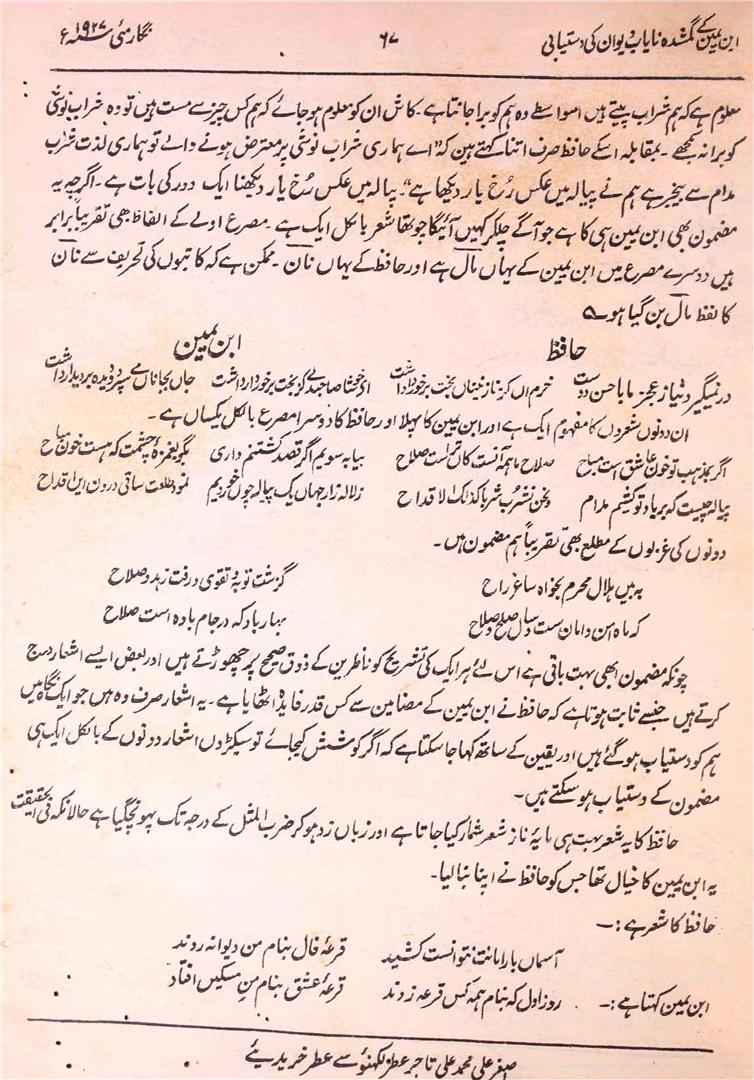 ابن یمین کے گمشدہ نایاب دیوان کی دستیابی ۶۷ نگار مئی ۱۹۲۷ء
معلوم ہے کہ ہم شراب پیتے ہیں اسواسطے وہ ہم کو برا جانتا ہے۔ کاش ان کو معلوم ہو جائے کہ ہم کس چیز سے مست ہیں تو وہ شراب نوشی
کو برا نہ سمجھے۔ بمقابلہ اسکے حافظ صرف اتنا کہتے ہیں کہ "اے ہماری شراب نوشی پر معترض ہونے والے تو ہماری لذت شرب
مدام سے بیخبر ہے ہم نے پیالہ میں عکس رُخ یار دیکھا ہے"۔ پیالہ میں عکس رُخ یار دیکھنا ایک دور کی بات ہے۔ اگرچہ یہ
مضمون بھی ابن یمین ہی کا ہے جو آگے چلکر کہیں آئیگا چوتھا شعر بالکل ایک ہے۔ مصرع اولے کے الفاظ بھی تقریباً برابر
ہیں دوسرے مصرع میں ابن یمین کے یہاں مال ہے اور حافظ کے یہاں نان۔ ممکن ہے کہ کاتبوں کی تحریف سے نان
کا لفظ مال بن گیا ہو۔
حافظ ابن یمین
در نمیگیرد نیاز و عجز ما با حسن دوست خرم آں کز نازنیناں بخت برخوردار داشت اے خوشا صاحبدلے کز بخت برخوردار داشت جاں بجاناں مے سپرد و دیدہ بر دیدار داشت
ان دونوں شعروں کا مفہوم ایک ہے اور ابن یمین کا پہلا اور حافظ کا دوسرا مصرع بالکل یکساں ہے۔
اگر بمذہب تو خون عاشق است مباح صلاح ما ہمہ آنست کاں تراست صلاح بیا بہ سویم اگر قصد کشتنم داری بگو بغمزہ چشمت کہ ہست خون مباح
پیالہ چیست کہ بر یاد تو کشیم مدام ونحن نشرب شربا کذلک الاقداح ز لالہ زار جہاں یک پیالہ چوں خوریم نمود طلعت ساقی درون ایں اقداح
دونوں کی غزلوں کے مطلع بھی تقریباً ہم مضمون ہیں۔
بہ بیں ہلال محرم بخواہ ساغر راح گزشت توبہ و تقوی و رفت زہد و صلاح
کہ ماہ امن و امان ست و سال صلح و صلاح بہار باد کہ در جام بادہ است صلاح
چونکہ مضمون ابھی بہت باقی ہے اس لئے ہر ایک کی تشریح کو ناظرین کے ذوق صحیح پر چھوڑتے ہیں اور بعض ایسے اشعار درج
کرتے ہیں جنسے ثابت ہوتا ہے کہ حافظ نے ابن یمین کے مضامین سے کس قدر فایدہ اٹھایا ہے۔ یہ اشعار صرف وہ ہیں جو ایک نگاہ میں
ہم کو دستیاب ہو گئے ہیں اور یقین کے ساتھ کہا جا سکتا ہے کہ اگر کوشش کیجائے تو سیکڑوں اشعار دونوں کے بالکل ایک ہی
مضمون کے دستیاب ہو سکتے ہیں۔
حافظ کا یہ شعر بہت ہی مایۂ ناز شعر شمار کیا جاتا ہے اور زباں زد ہو کر ضرب المثل کے درجہ تک پہونچگیا ہے حالانکہ فی الحقیقت
یہ ابن یمین کا خیال تھا جس کو حافظ نے اپنا بنا لیا۔
حافظ کا شعر ہے:۔
آسماں بار امانت نتوانست کشید قرعۂ فال بنام من دیوانہ زدند
ابن یمین کہتا ہے:۔ روز اول کہ بنام ہمہ کس قرعہ زدند قرعۂ عشق بنام من مسکیں افتاد
اصغر علی محمد علی تاجر عطر لکھنؤ سے عطر خریدیئے